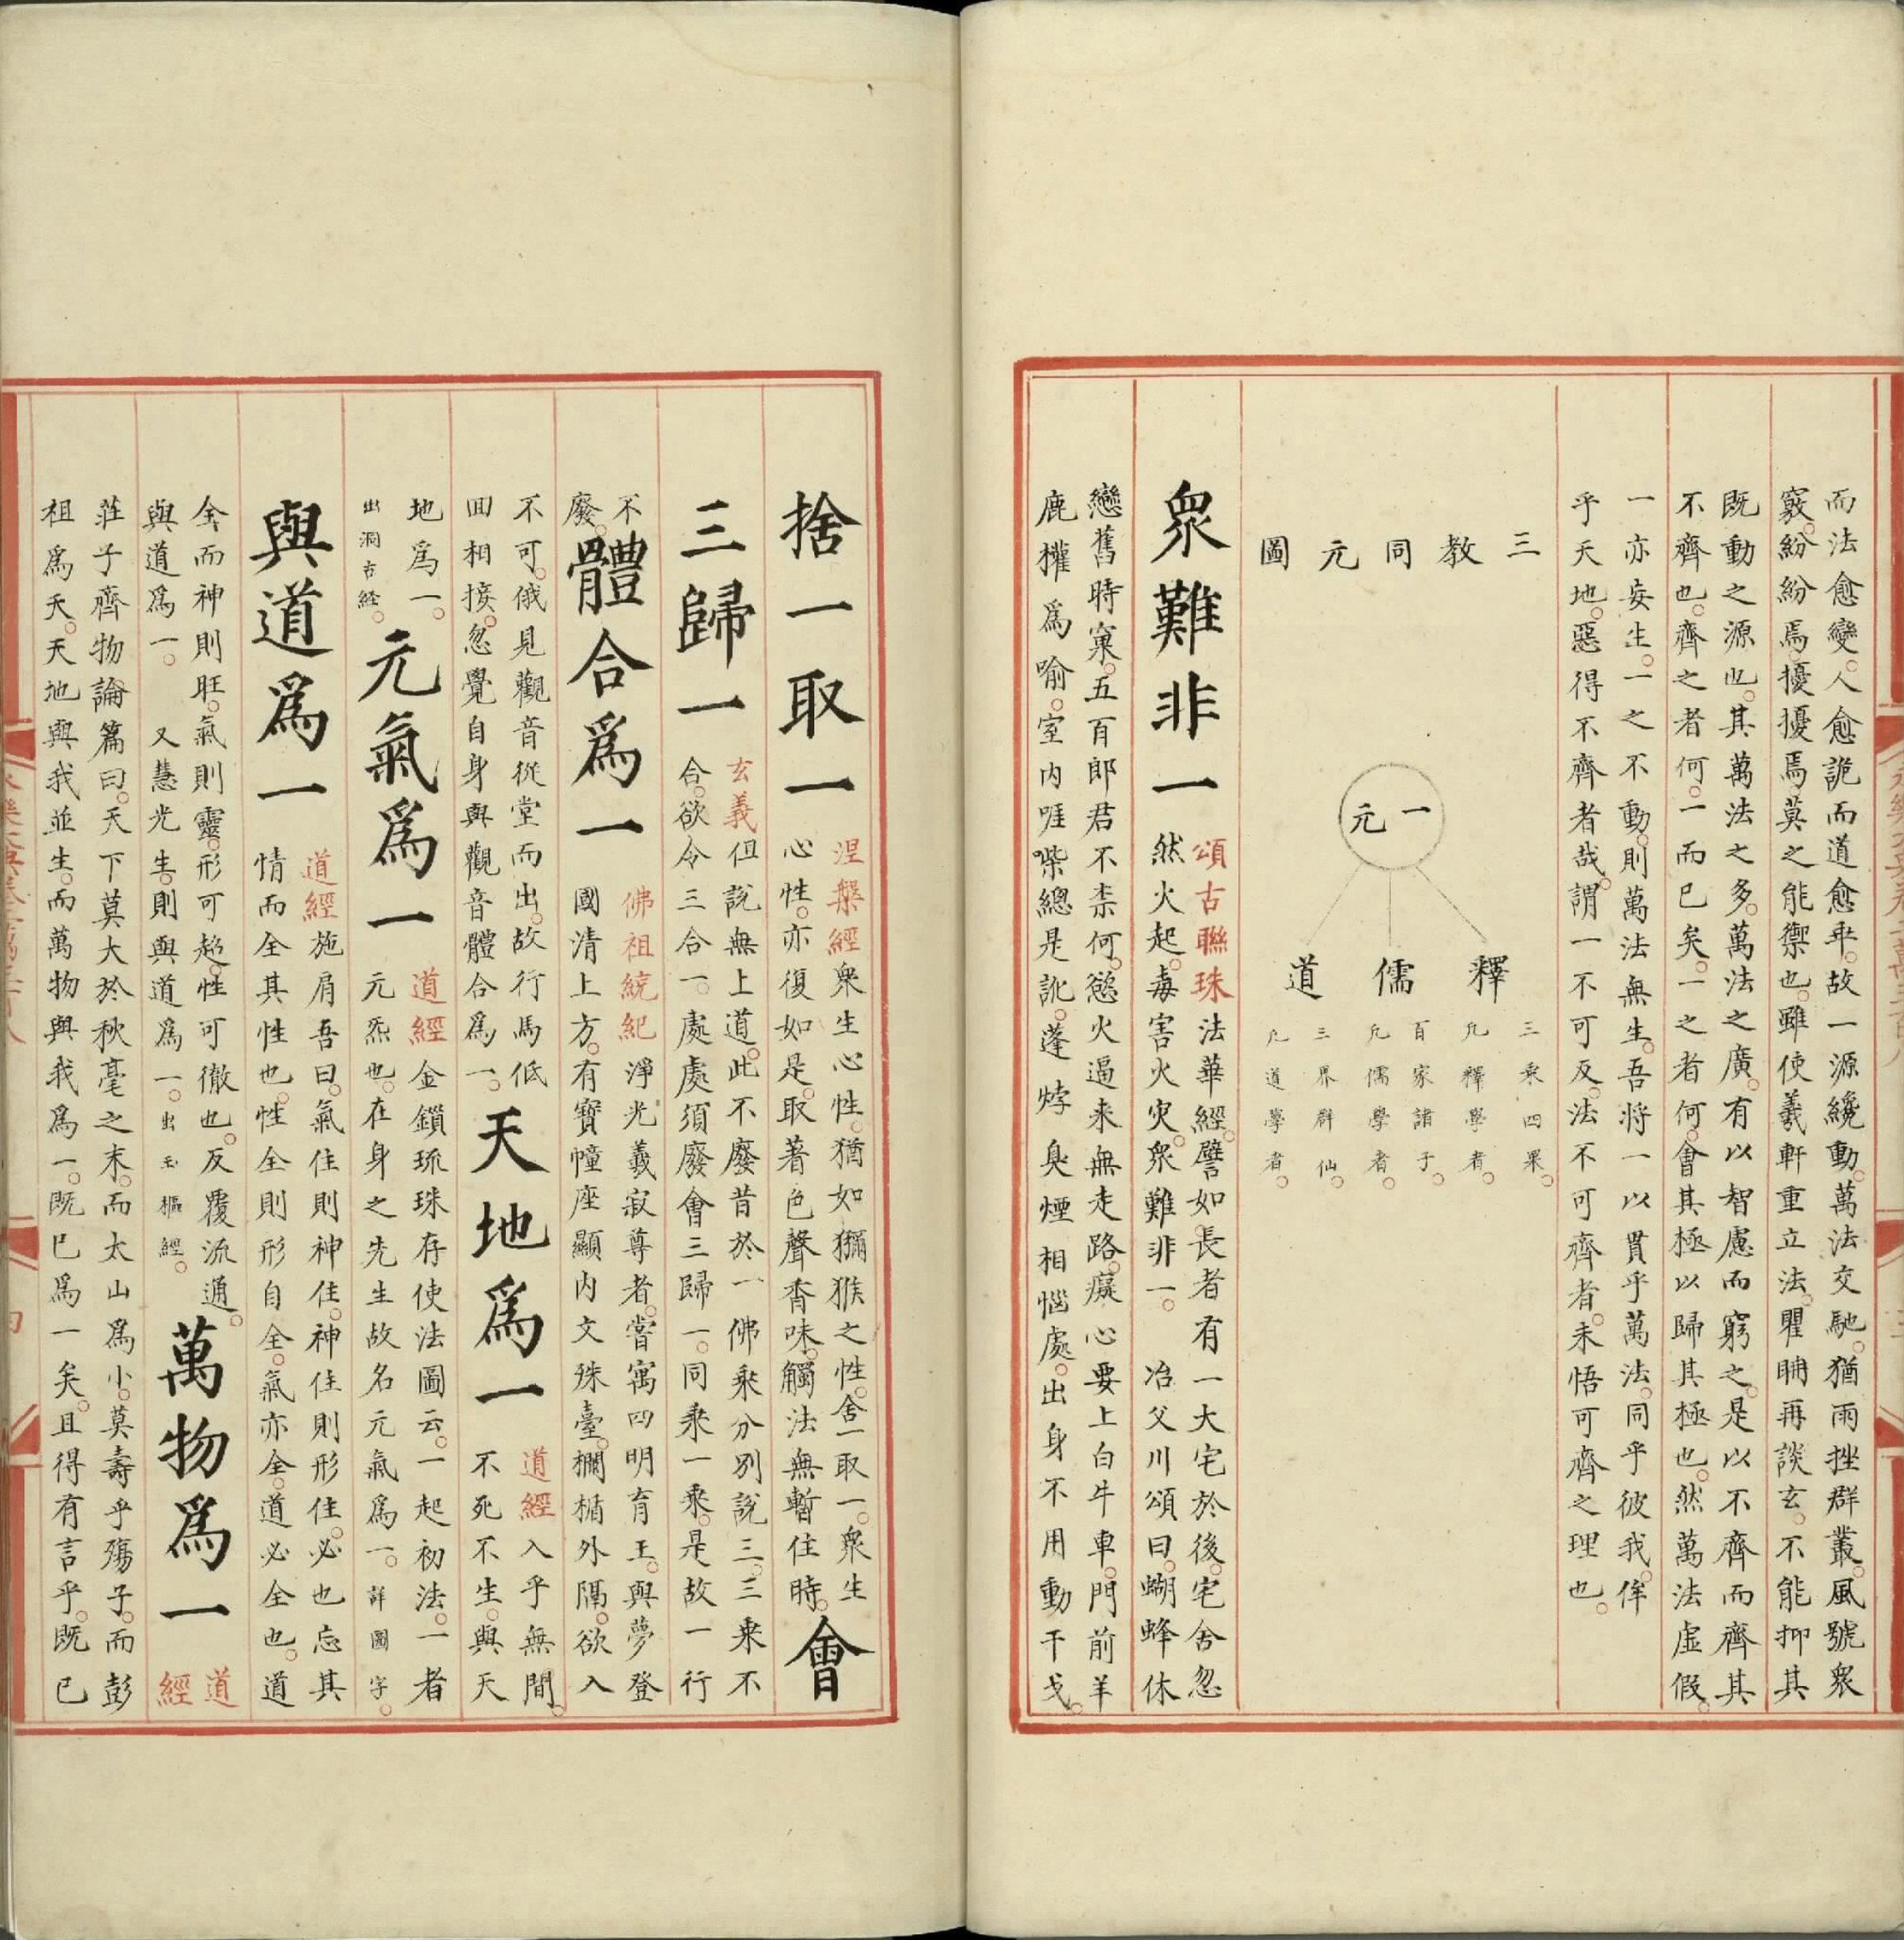 而法愈變。人愈詭而道愈乖。故一源纔動。萬法交馳。猶雨挫群叢。風號衆
竅。紛紛焉擾擾焉。莫之能禦也。雖使羲軒重立法。瞿聃再談玄。不能抑其
既動之源也。其萬法之多。萬法之廣。有以智慮而窮之。是以不齊而齊其
不齊也。齊之者何。一而已矣。一之者何。會其極以歸其極也。然萬法虛假。
一亦妄生。一之不動。則萬法無生。吾將一以貫乎萬法。同乎彼我。侔
乎天地。惡得不齊者哉。謂一不可反。法不可齊者。未悟可齊之理也。
三教同元圖
一元
釋 三乘四果。凡釋學者。
儒 百家諸子。凡儒學者。
道 三界群仙。凡道學者。
衆難非一
頌古聯珠法華經。譬如長者有一大宅於後。宅舍忽
然火起。毒害火灾。衆難非一。 冶父川頌曰。蝴蜂休
戀舊時窠。五百郎君不柰何。慾火逼来無走路。癡心要上白牛車。門前羊
鹿權爲喻。室内啀㗒總是訛。蓬㶿臭煙相惱處。出身不用動干戈。
捨一取一
涅槃經衆生心性。猶如獼猴之性。舍一取一。衆生
心性。亦復如是。取著色聲香味觸法無暫住時。
會三歸一
玄義但説無上道。此不廢昔於一佛乘分别説三。三乘不
合。欲令三合一。處處須廢會三歸一。同乘一乘。是故一行
不
廢。
體合爲一
佛祖統紀淨光義寂尊者。嘗寓四明育王。與夢登
國清上方。有寳幢座顯内文殊臺。欄楯外隔。欲入
不可。俄見觀音從堂而出。故行馬低
囬相接。忽覺自身與觀音體合爲一。
天地爲一
道經入乎無間。
不死不生。與天
地爲一。
出洞古經。
元氣爲一
道經金鎖珠存使法圖云。一起初法。一者
元炁也。在身之先生故名元氣爲一。詳圖字。
與道爲一
道經施肩吾曰。氣住則神住。神住則形住。必也忘其
情而全其性也。性全則形自全。氣亦全。道必全也。道
全而神則旺。氣則靈。形可超。性可徹也。反覆流通。
與道爲一。 又慧光生。則與道爲一。出玉樞經。
萬物爲一
道
經
莊子齊物論篇曰。天下莫大於秋毫之末。而太山爲小。莫壽乎殤子。而彭
祖爲夭。天地與我並生。而萬物與我爲一。既已爲一矣。且得有言乎。既已